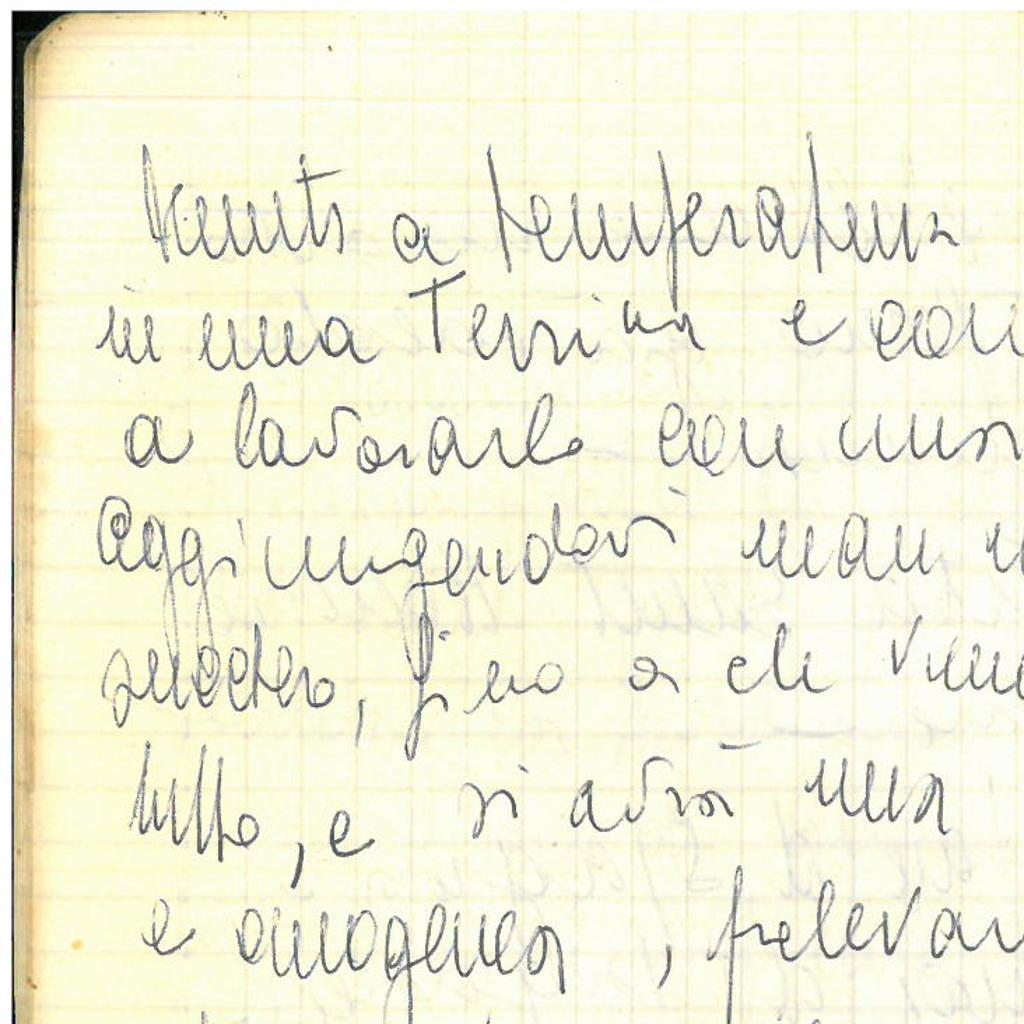 tenuto a temperatura
in una Terrina e con
a lavorarlo con una
Aggiungendovi man m
zucchero, fino a che viene
tutto, e si avrà una
e omogenea, prelevar